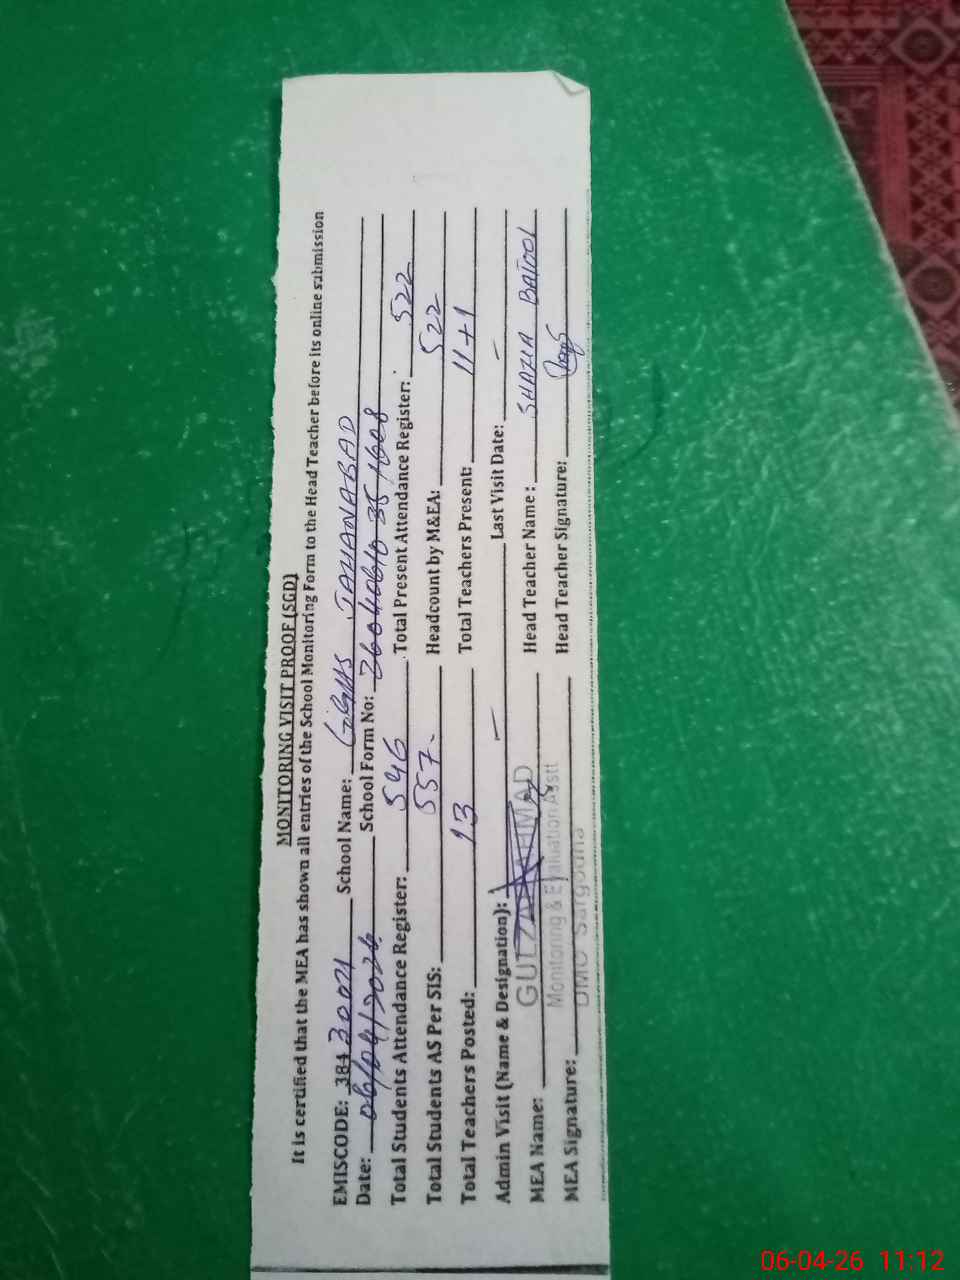 MONITORING VISIT PROOF (SGD)
It is certified that the MEA has shown all entries of the School Monitoring Form to the Head Teacher before its online submission
EMISCODE: 38430021 School Name: GGHS JAHANABAD
Date: 06/04/2026 School Form No:
Total Students Attendance Register: 546 Total Present Attendance Register: 522
Total Students AS Per SIS: 557 Headcount by M&EA: 522
Total Teachers Posted: 13 Total Teachers Present: 11+1
Admin Visit (Name & Designation): — Last Visit Date: —
MEA Name: AHMAD Head Teacher Name: SHAZIA BATOOL
Monitoring & Evaluation Asstt
MEA Signature: Head Teacher Signature:
DMO Sargodha
06-04-26 11:12